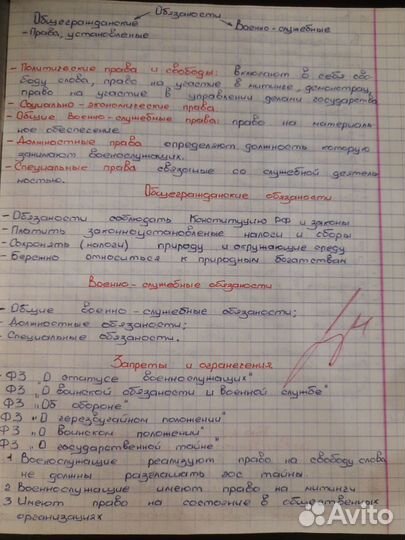 Обязаности
Общегражданские Военно-служебные
- Права, установленые
- Политические права и свободы: включают в себя сво-
боду слова, право на участие в митинге, демонстрац,
право на участие в управлении делами государства
- Социально-экономические права
- Общие военно-служебные права: право на материаль-
ное обеспечение
- Должностные права определяют должность которую
занимают военослужащих.
- Специальные права связаные со служебной деятель-
ностью.
Общегражданские обязаности
- Обязаности соблюдать Конституцию РФ и законы
- Платить законноустановленые налоси и сборы
- Сохронять (налоги) природу и окружающие среду
- Бережно относиться к природным богатствам
Военно-служебные обязаности
- Общие военно-служебные обязаности;
- Должностные обязаности;
- Специальные обязаности.
Запреты и огранечения
- ФЗ „О статусе военослужащих"
ФЗ „О воинской обязаности и военной службе"
ФЗ „Об обороне"
ФЗ „О черезвучайном положении"
ФЗ „О воинском положении"
ФЗ „О государственной тайне"
1 Воснослужащие реализуют право на свободу слова
не должны разглашать гос тайны
2 Военослужащие имеют право на митинги
3 Имеют право на состояние в общественных
организациях
Avito